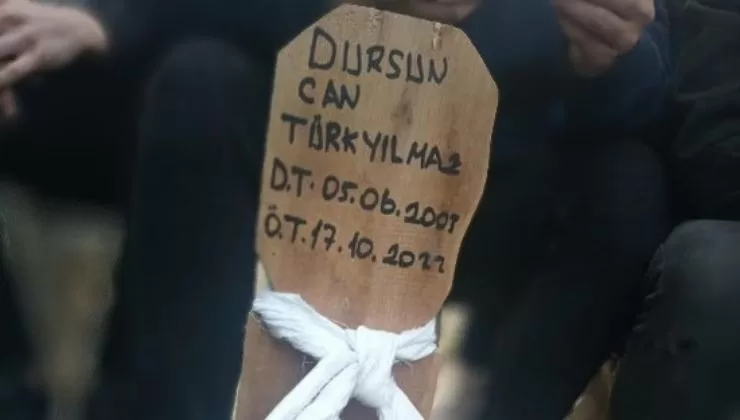 DURSUN
CAN
TÜRKYILMAZ
D.T. 05.06.2005
Ö.T. 17.10.2022